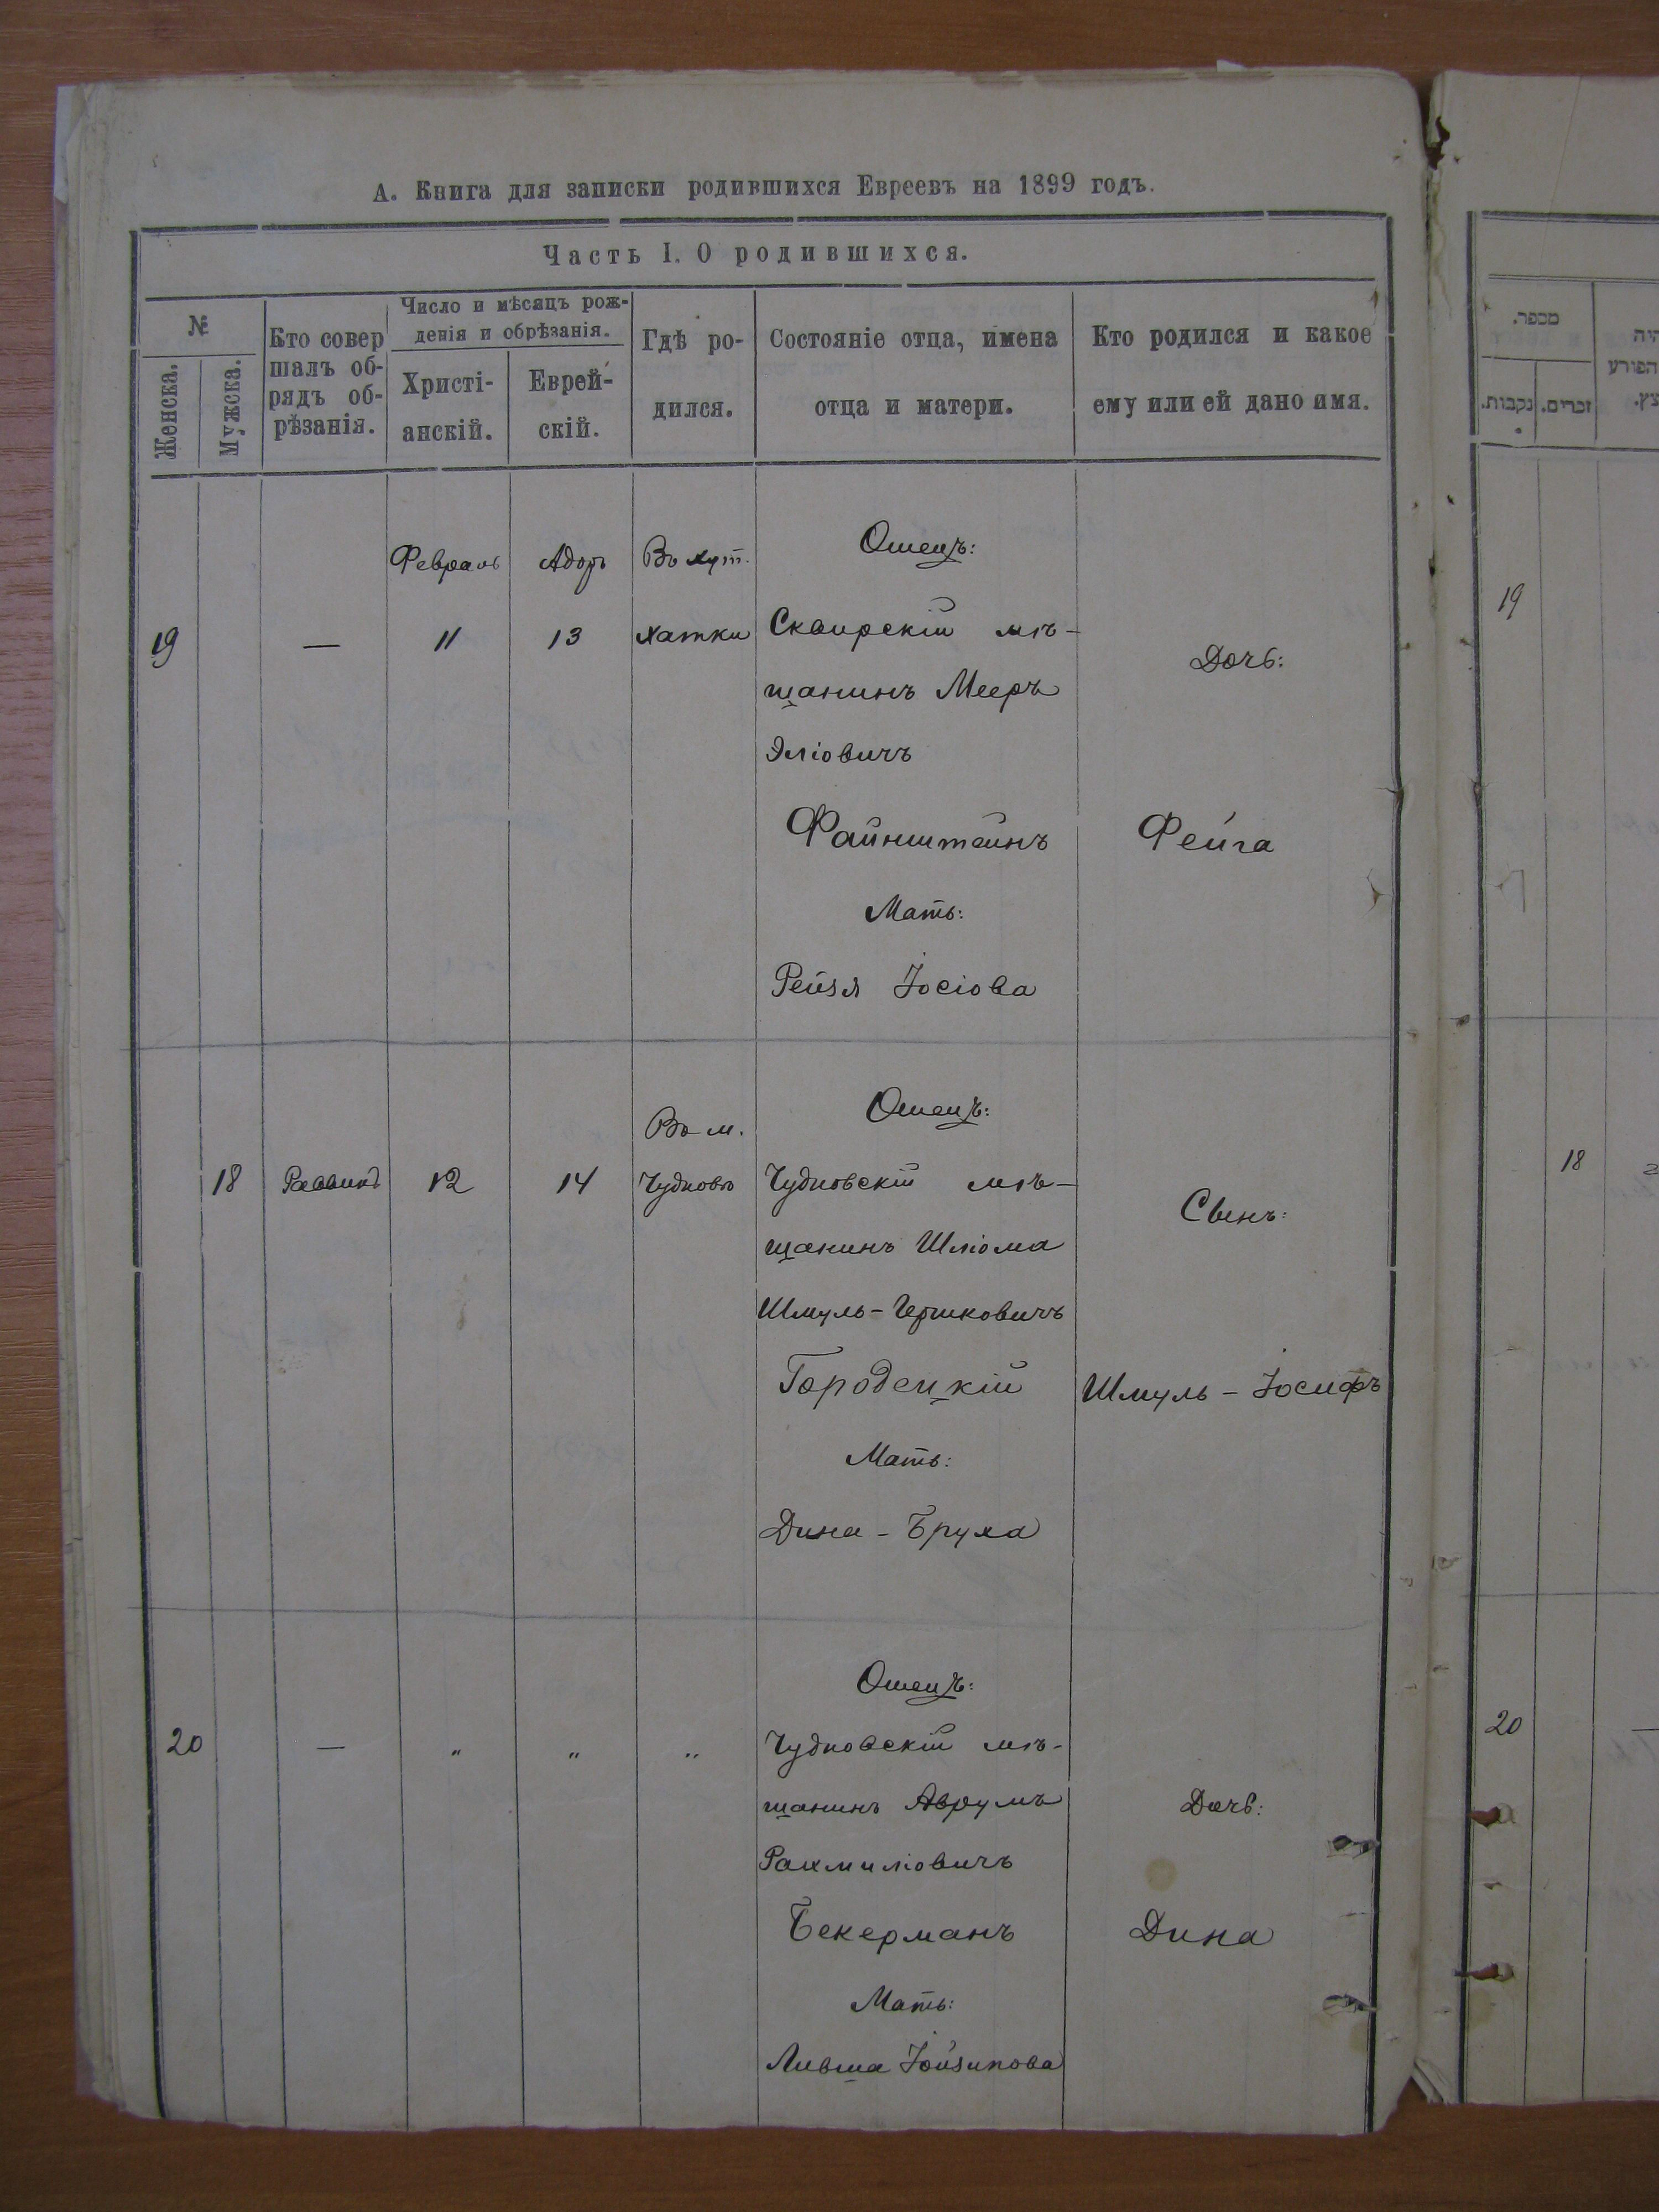 А. Книга для записки родившихся Евреевъ на 1899 годъ.
Часть I. О родившихся.
№
Женска.
Мужска.
Кто совер
шалъ об-
рядъ об-
рѣзанія.
Число и мѣсяцъ рож-
денія и обрѣзанія.
Христі-
анскій.
Еврей-
скій.
Гдѣ ро-
дился.
Состояніе отца, имена
отца и матери.
Кто родился и какое
ему или ей дано имя.
Февраль
Адоръ
Въ хут.
Отецъ:
19
—
11
13
Хатки
Сквирскій мѣ-
щанинъ Мееръ
Эліовичъ
Файнштейнъ
Мать:
Рейзя Іосіова
Дочь:
Фейга
Въ м.
Отецъ:
18
Раввинъ
12
14
Чудновѣ
Чудновскій мѣ-
щанинъ Шліома
Шмуль-Гершковичъ
Городецкій
Мать:
Дина - Бруха
Сынъ:
Шмуль - Іосифъ
Отецъ:
20
—
"
"
"
Чудновскій мѣ-
щанинъ Аврумъ
Рахмиліовичъ
Бекерманъ
Мать:
Ливша Іойзипова
Дочь:
Дина
מספר.
זכרים.
נקבות.
הפורע
19
18
20